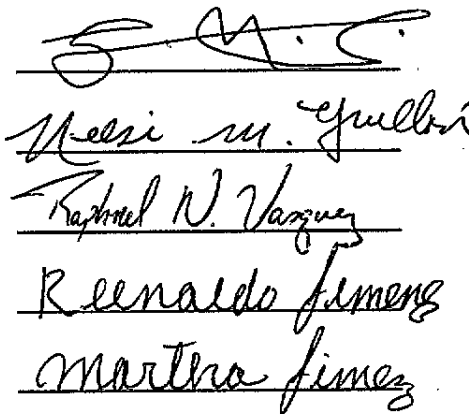 Neesi M. Guillen
Raphael N. Vasquez
Reenaldo Jimenz
Martha Jimez